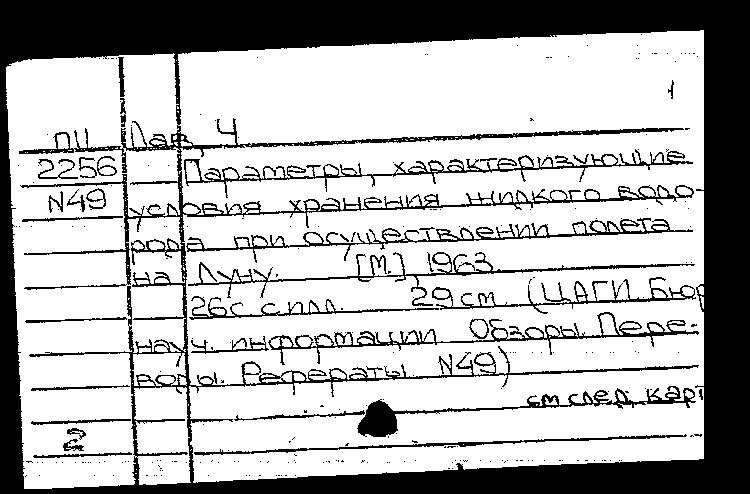 1
ПЦ Лав. Ч
2256 Параметры, характеризующие
N49 условия хранения жидкого водо-
рода при осуществлении полета
на Луну. [М.], 1963
26с с илл. 29 см (ЦАГИ. Бюр
науч. информации Обзоры. Пере-
воды. Рефераты N49)
см след. карт
2